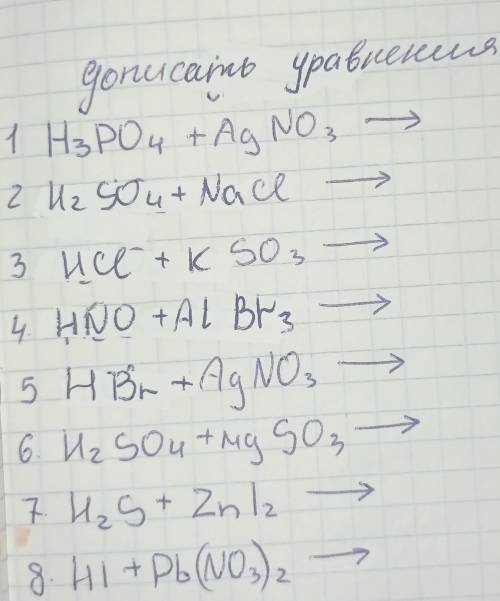 дописать уравнения
1 H₃PO₄ + AgNO₃ →
2 H₂SO₄ + NaCl →
3 HCl + K SO₃ →
4. HNO + Al Br₃ →
5 HBr + AgNO₃ →
6. H₂SO₄ + Mg SO₃ →
7. H₂S + ZnI₂ →
8. HI + Pb(NO₃)₂ →